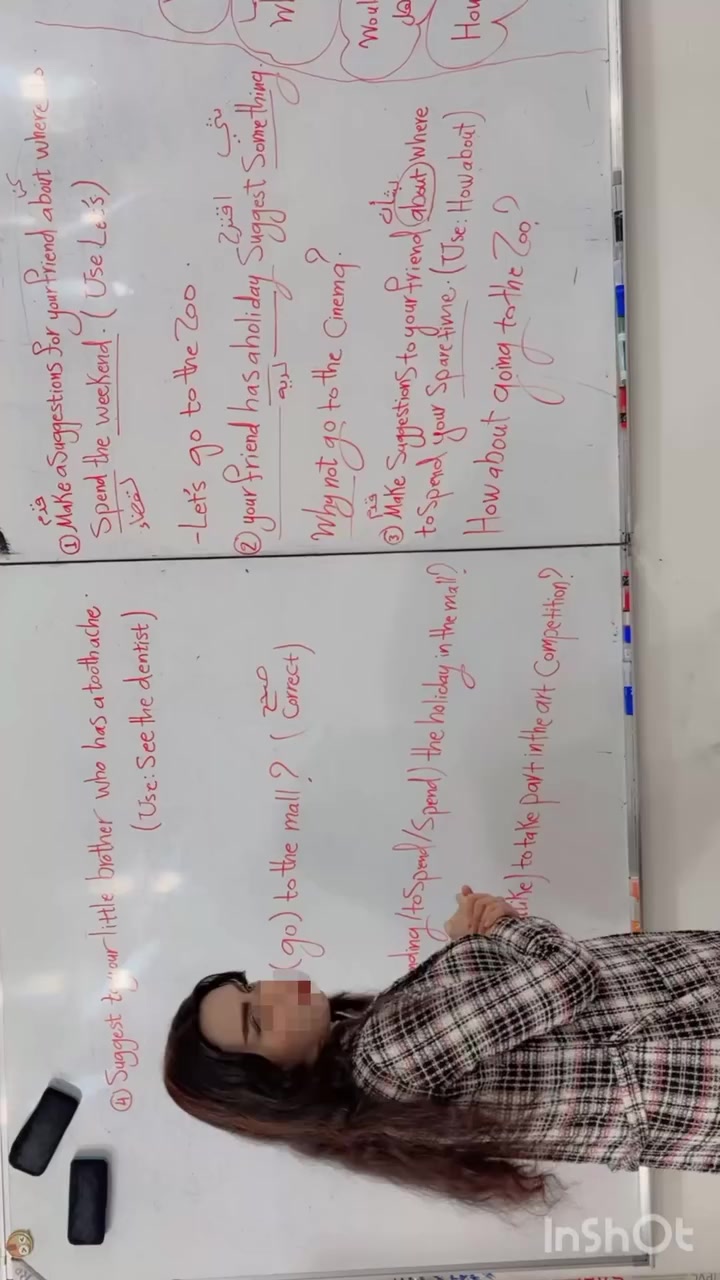 ① Make a suggestions for your friend about where to
Spend the weekend. (Use Let's)
- Let's go to the Zoo.
② your friend has a holiday Suggest Something.
Why not go to the Cinema?
③ Make Suggestions to your friend about where
to spend your spare time. (Use: How about)
How about going to the Zoo?
④ Suggest to your little brother who has a toothache.
(Use: See the dentist)
(go) to the mall? (Correct)
صحح
/to Spend/Spend) the holiday in the mall?
to take part in the art Competition?
Woul
How
InShOt